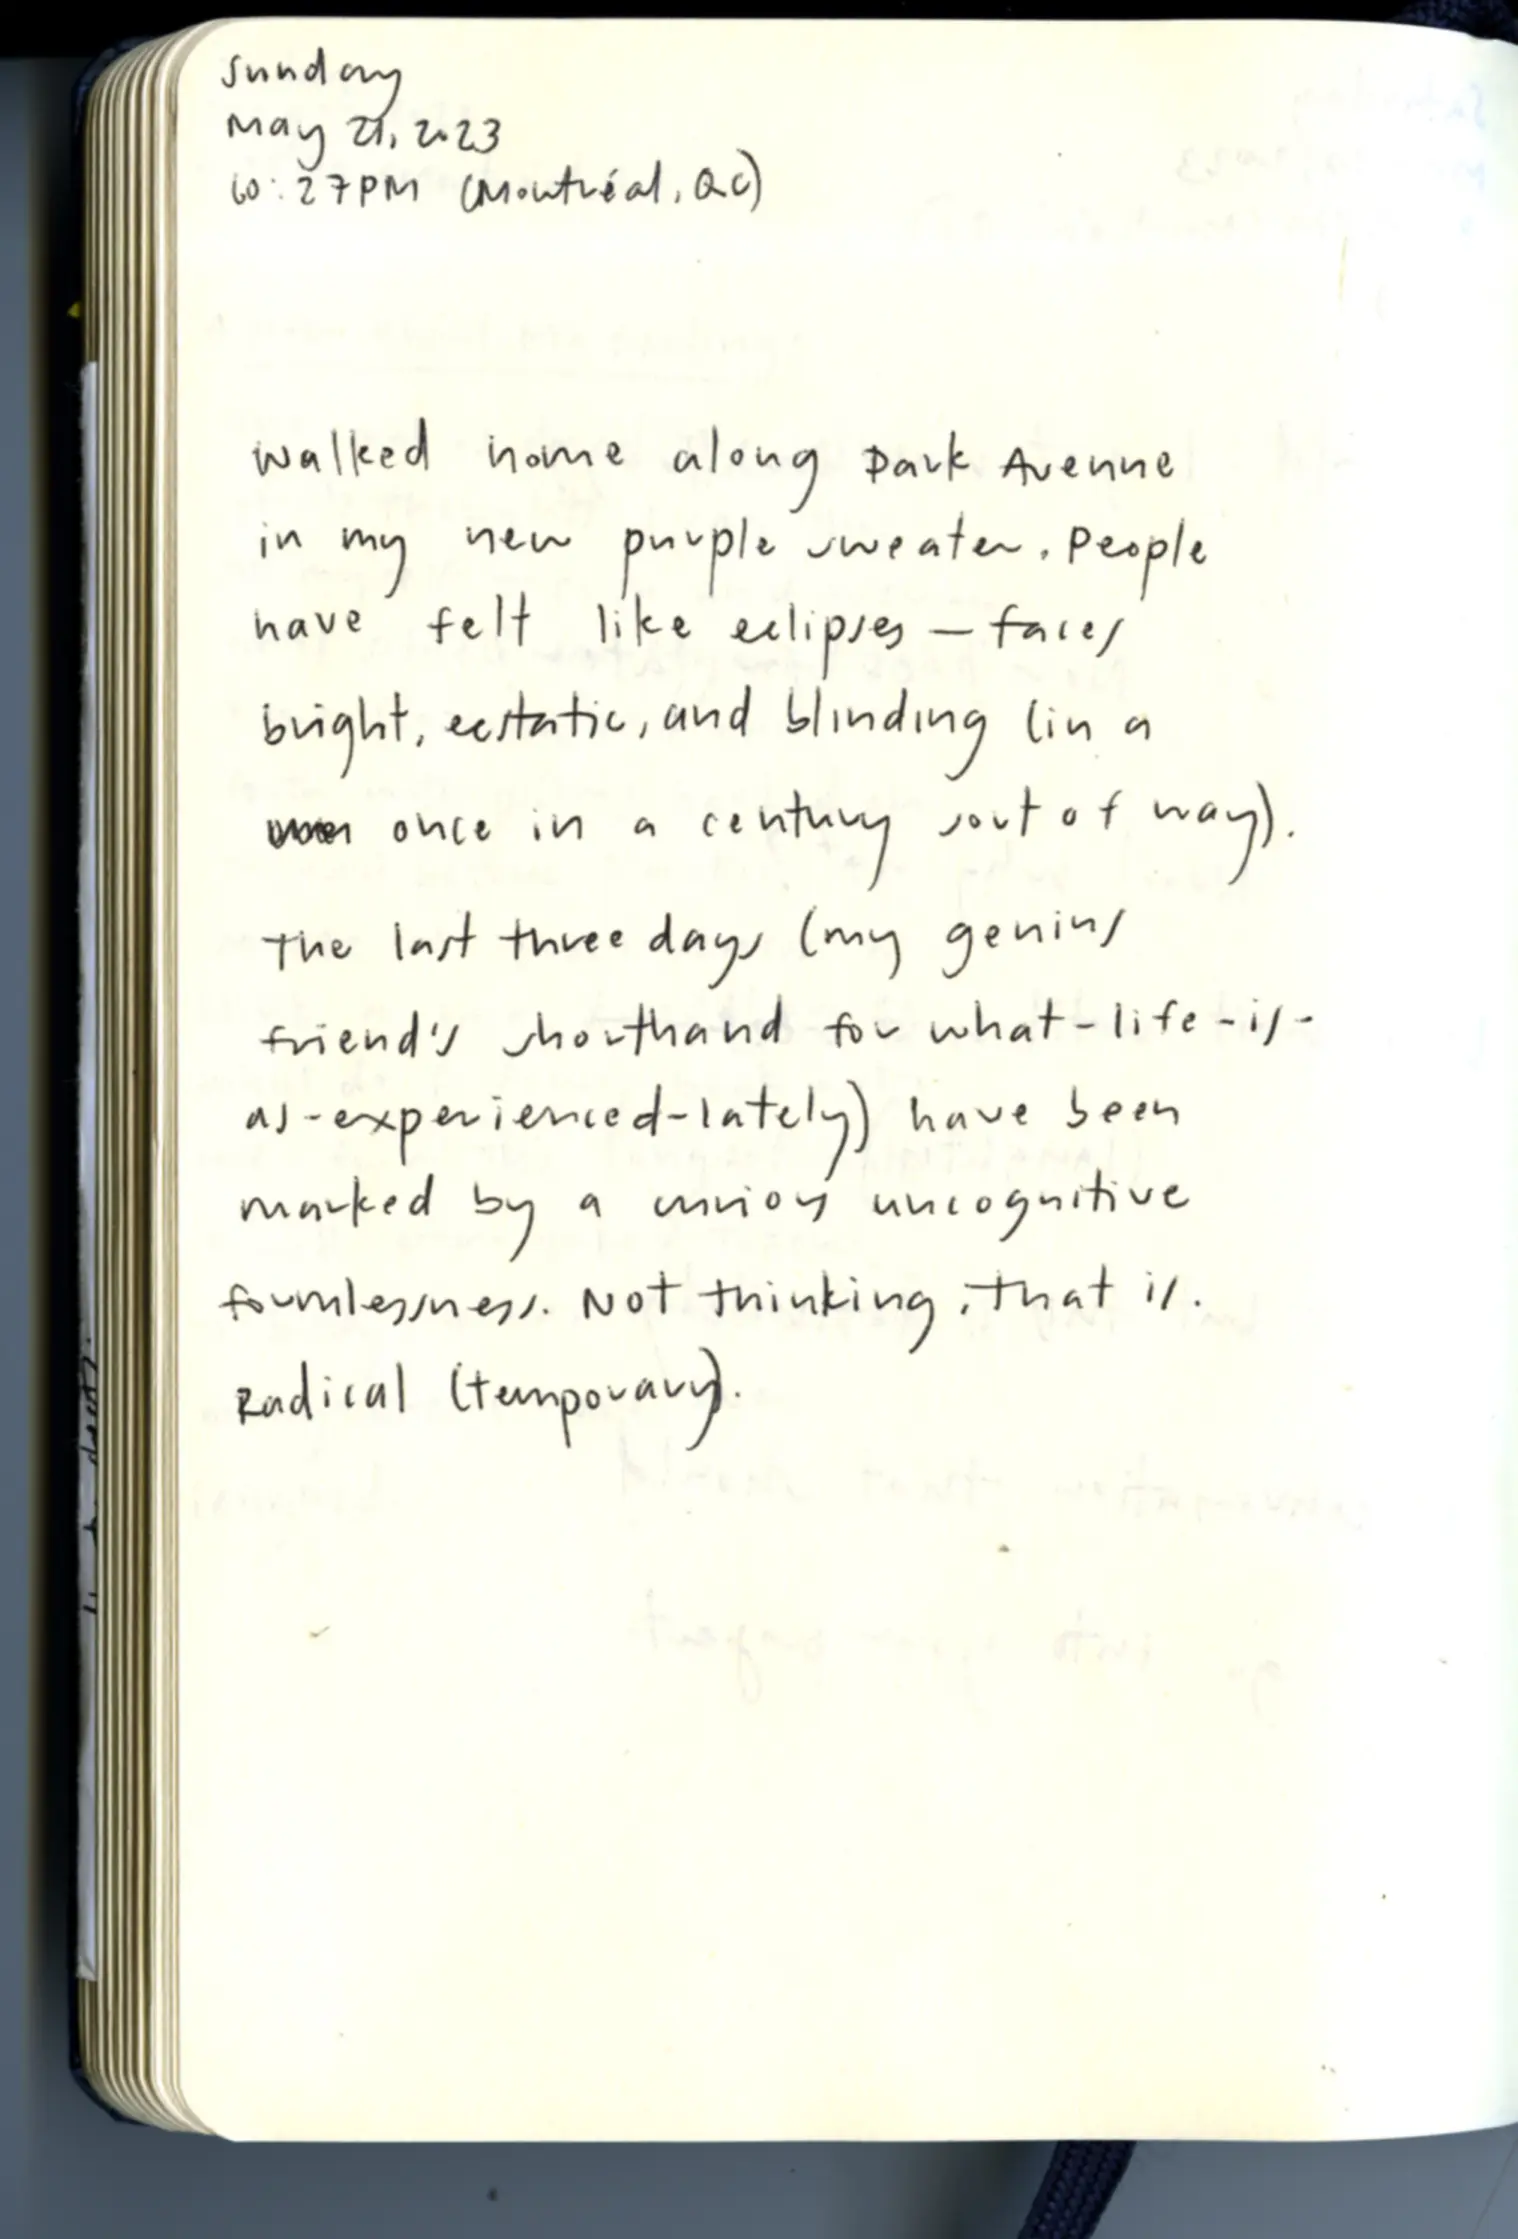 Sunday
May 21, 2023
10:27PM (Montréal, QC)
Walked home along Park Avenue
in my new purple sweater. People
have felt like eclipses — faces
bright, ecstatic, and blinding (in a
once in a century sort of way).
The last three days (my genius
friend's shorthand for what-life-is-
as-experienced-lately) have been
marked by a curious uncognitive
formlessness. Not thinking, that is.
Radical (temporary).